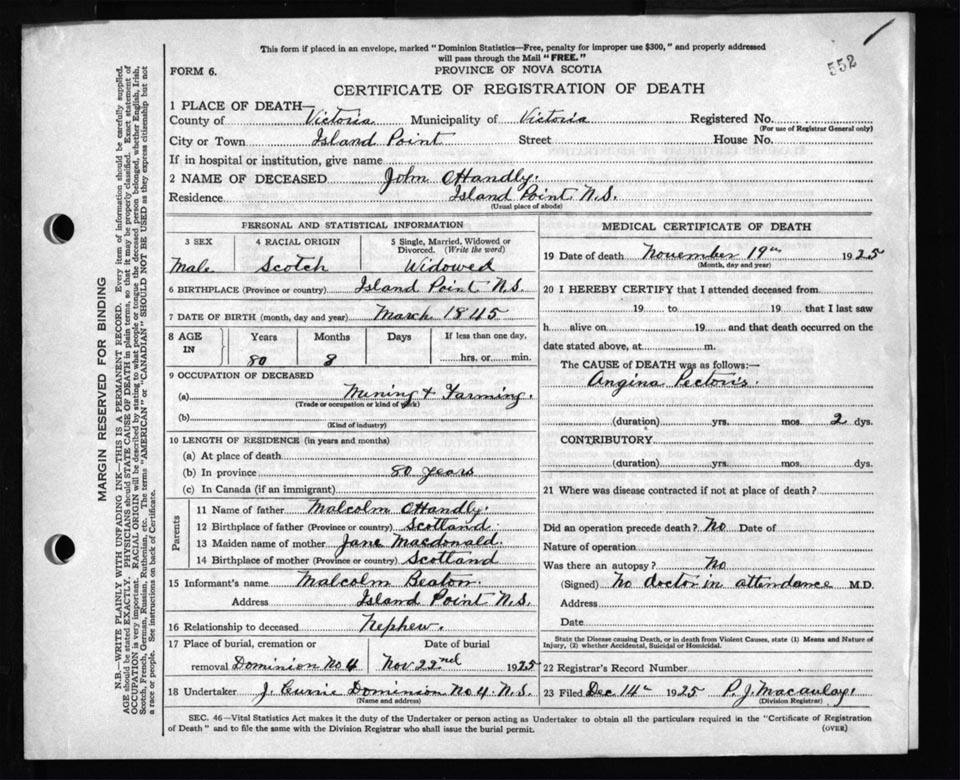 552
This form if placed in an envelope, marked "Dominion Statistics—Free, penalty for improper use $300," and properly addressed
will pass through the Mail "FREE."
FORM 6.
PROVINCE OF NOVA SCOTIA
CERTIFICATE OF REGISTRATION OF DEATH
1 PLACE OF DEATH—
County of Victoria Municipality of Victoria Registered No.
(For use of Registrar General only)
City or Town Island Point Street House No.
If in hospital or institution, give name
2 NAME OF DECEASED John O'Handly.
Residence Island Point N.S.
(Usual place of abode)
PERSONAL AND STATISTICAL INFORMATION
3 SEX 4 RACIAL ORIGIN 5 Single, Married, Widowed or
Divorced. (Write the word)
Male Scotch Widowed
6 BIRTHPLACE (Province or country) Island Point N.S.
7 DATE OF BIRTH (month, day and year) March 1845
8 AGE IN Years Months Days If less than one day,
80 8 hrs. or min.
9 OCCUPATION OF DECEASED
(a) Mining & Farming.
(Trade or occupation or kind of work)
(b)
(Kind of industry)
10 LENGTH OF RESIDENCE (in years and months)
(a) At place of death
(b) In province 80 years
(c) In Canada (if an immigrant)
Parents
11 Name of father Malcolm O'Handly.
12 Birthplace of father (Province or country) Scotland.
13 Maiden name of mother Jane Macdonald
14 Birthplace of mother (Province or country) Scotland
15 Informant's name Malcolm Beaton.
Address Island Point N.S.
16 Relationship to deceased Nephew.
17 Place of burial, cremation or Date of burial
removal Dominion No 4 Nov 22nd 1925
18 Undertaker J. Currie Dominion No 4. N.S.
(Name and address)
MEDICAL CERTIFICATE OF DEATH
19 Date of death November 19th 1925
(Month, day and year)
20 I HEREBY CERTIFY that I attended deceased from
19 to 19 that I last saw
h alive on 19 and that death occurred on the
date stated above, at m.
The CAUSE of DEATH was as follows:—
Angina Pectoris.
(duration) yrs. mos. 2 dys.
CONTRIBUTORY
(duration) yrs. mos. dys.
21 Where was disease contracted if not at place of death?
Did an operation precede death? No Date of
Nature of operation
Was there an autopsy? No
(Signed) No doctor in attendance M.D.
Address
Date
State the Disease causing Death, or in death from Violent Causes, state (1) Means and Nature of
Injury, (2) whether Accidental, Suicidal or Homicidal.
22 Registrar's Record Number
23 Filed Dec 14th 1925 P. J. Macaulay.
(Division Registrar)
SEC. 46—Vital Statistics Act makes it the duty of the Undertaker or person acting as Undertaker to obtain all the particulars required in the "Certificate of Registration
of Death" and to file the same with the Division Registrar who shall issue the burial permit.
(OVER)
MARGIN RESERVED FOR BINDING
N.B.—WRITE PLAINLY WITH UNFADING INK—THIS IS A PERMANENT RECORD. Every item of information should be carefully supplied.
AGE should be stated EXACTLY. PHYSICIANS should STATE CAUSE OF DEATH in plain terms, so that it may be properly classified. Exact statement of
OCCUPATION is very important. RACIAL ORIGIN will be described by stating to what people or tongue the deceased person belonged, whether English, Irish,
Scotch, French, German, Russian, Ruthenian, etc. The terms "AMERICAN" or "CANADIAN" SHOULD NOT BE USED as they express citizenship but not
a race or people. See instructions on back of Certificate.